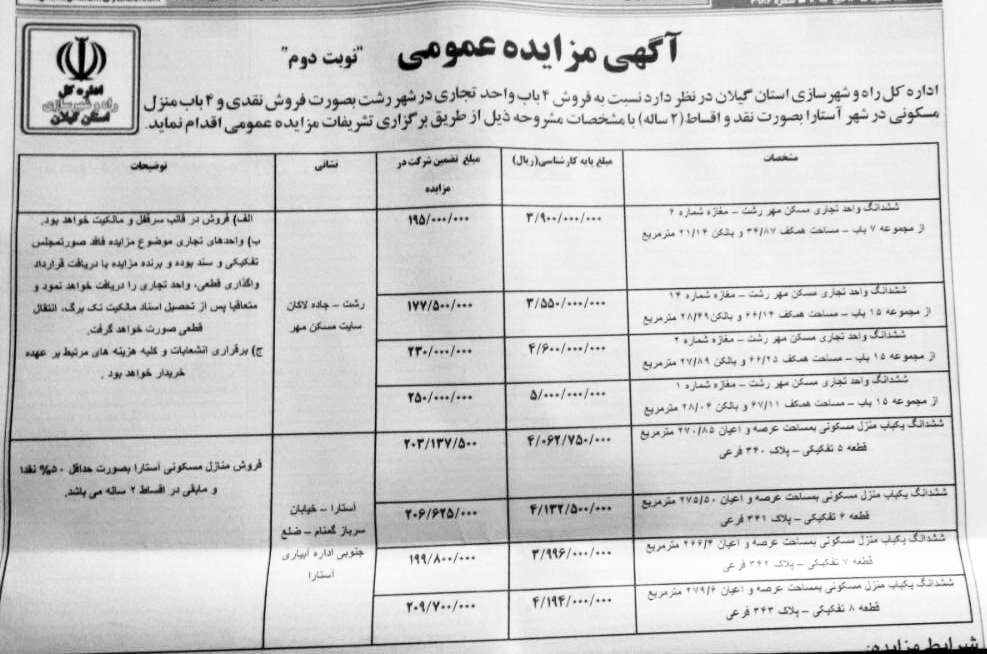 آگهی مزایده عمومی "نوبت دوم"
اداره کل
راه و شهرسازی
استان گیلان
اداره کل راه و شهرسازی استان گیلان در نظر دارد نسبت به فروش ۴ باب واحد تجاری در شهر رشت بصورت فروش نقدی و ۴ باب منزل
مسکونی در شهر آستارا بصورت نقد و اقساط (۲ ساله) با مشخصات مشروحه ذیل از طریق برگزاری تشریفات مزایده عمومی اقدام نماید.
مشخصات
مبلغ پایه کارشناسی(ریال)
مبلغ تضمین شرکت در
مزایده
نشانی
توضیحات
ششدانگ واحد تجاری مسکن مهر رشت – مغازه شماره ۶
از مجموعه ۷ باب – مساحت همکف ۳۴/۸۷ و بالکن ۲۱/۱۴ مترمربع
۳/۹۰۰/۰۰۰/۰۰۰
۱۹۵/۰۰۰/۰۰۰
ششدانگ واحد تجاری مسکن مهر رشت – مغازه شماره ۱۴
از مجموعه ۱۵ باب – مساحت همکف ۶۶/۱۴ و بالکن ۲۸/۴۹ مترمربع
۳/۵۵۰/۰۰۰/۰۰۰
۱۷۷/۵۰۰/۰۰۰
ششدانگ واحد تجاری مسکن مهر رشت – مغازه شماره ۲
از مجموعه ۱۵ باب – مساحت همکف ۶۶/۲۵ و بالکن ۲۷/۸۹ مترمربع
۴/۶۰۰/۰۰۰/۰۰۰
۲۳۰/۰۰۰/۰۰۰
ششدانگ واحد تجاری مسکن مهر رشت – مغازه شماره ۱
از مجموعه ۱۵ باب – مساحت همکف ۶۷/۱۱ و بالکن ۲۸/۰۴ مترمربع
۵/۰۰۰/۰۰۰/۰۰۰
۲۵۰/۰۰۰/۰۰۰
رشت – جاده لاکان
سایت مسکن مهر
الف) فروش در قالب سرقفلی و مالکیت خواهد بود.
ب) واحدهای تجاری موضوع مزایده فاقد صورتمجلس
تفکیکی و سند بوده و برنده مزایده با دریافت قرارداد
واگذاری قطعی، واحد تجاری را دریافت خواهد نمود و
متعاقبا پس از تحصیل اسناد مالکیت تک برگ، انتقال
قطعی صورت خواهد گرفت.
ج) برقراری انشعابات و کلیه هزینه های مرتبط بر عهده
خریدار خواهد بود .
ششدانگ یکباب منزل مسکونی بمساحت عرصه و اعیان ۲۷۰/۸۵ مترمربع
قطعه ۵ تفکیکی – پلاک ۳۴۰ فرعی
۴/۰۶۲/۷۵۰/۰۰۰
۲۰۳/۱۳۷/۵۰۰
ششدانگ یکباب منزل مسکونی بمساحت عرصه و اعیان ۲۷۵/۵۰ مترمربع
قطعه ۶ تفکیکی – پلاک ۳۴۱ فرعی
۴/۱۳۲/۵۰۰/۰۰۰
۲۰۶/۶۲۵/۰۰۰
ششدانگ یکباب منزل مسکونی بمساحت عرصه و اعیان ۲۶۶/۴ مترمربع
قطعه ۷ تفکیکی – پلاک ۳۴۲ فرعی
۳/۹۹۶/۰۰۰/۰۰۰
۱۹۹/۸۰۰/۰۰۰
ششدانگ یکباب منزل مسکونی بمساحت عرصه و اعیان ۲۷۹/۶ مترمربع
قطعه ۸ تفکیکی – پلاک ۳۴۳ فرعی
۴/۱۹۴/۰۰۰/۰۰۰
۲۰۹/۷۰۰/۰۰۰
آستارا – خیابان
سرباز گمنام – ضلع
جنوبی اداره آبیاری
آستارا
فروش منازل مسکونی آستارا بصورت حداقل ۵۰% نقدا
و مابقی در اقساط ۲ ساله می باشد.
شرایط مزایده: